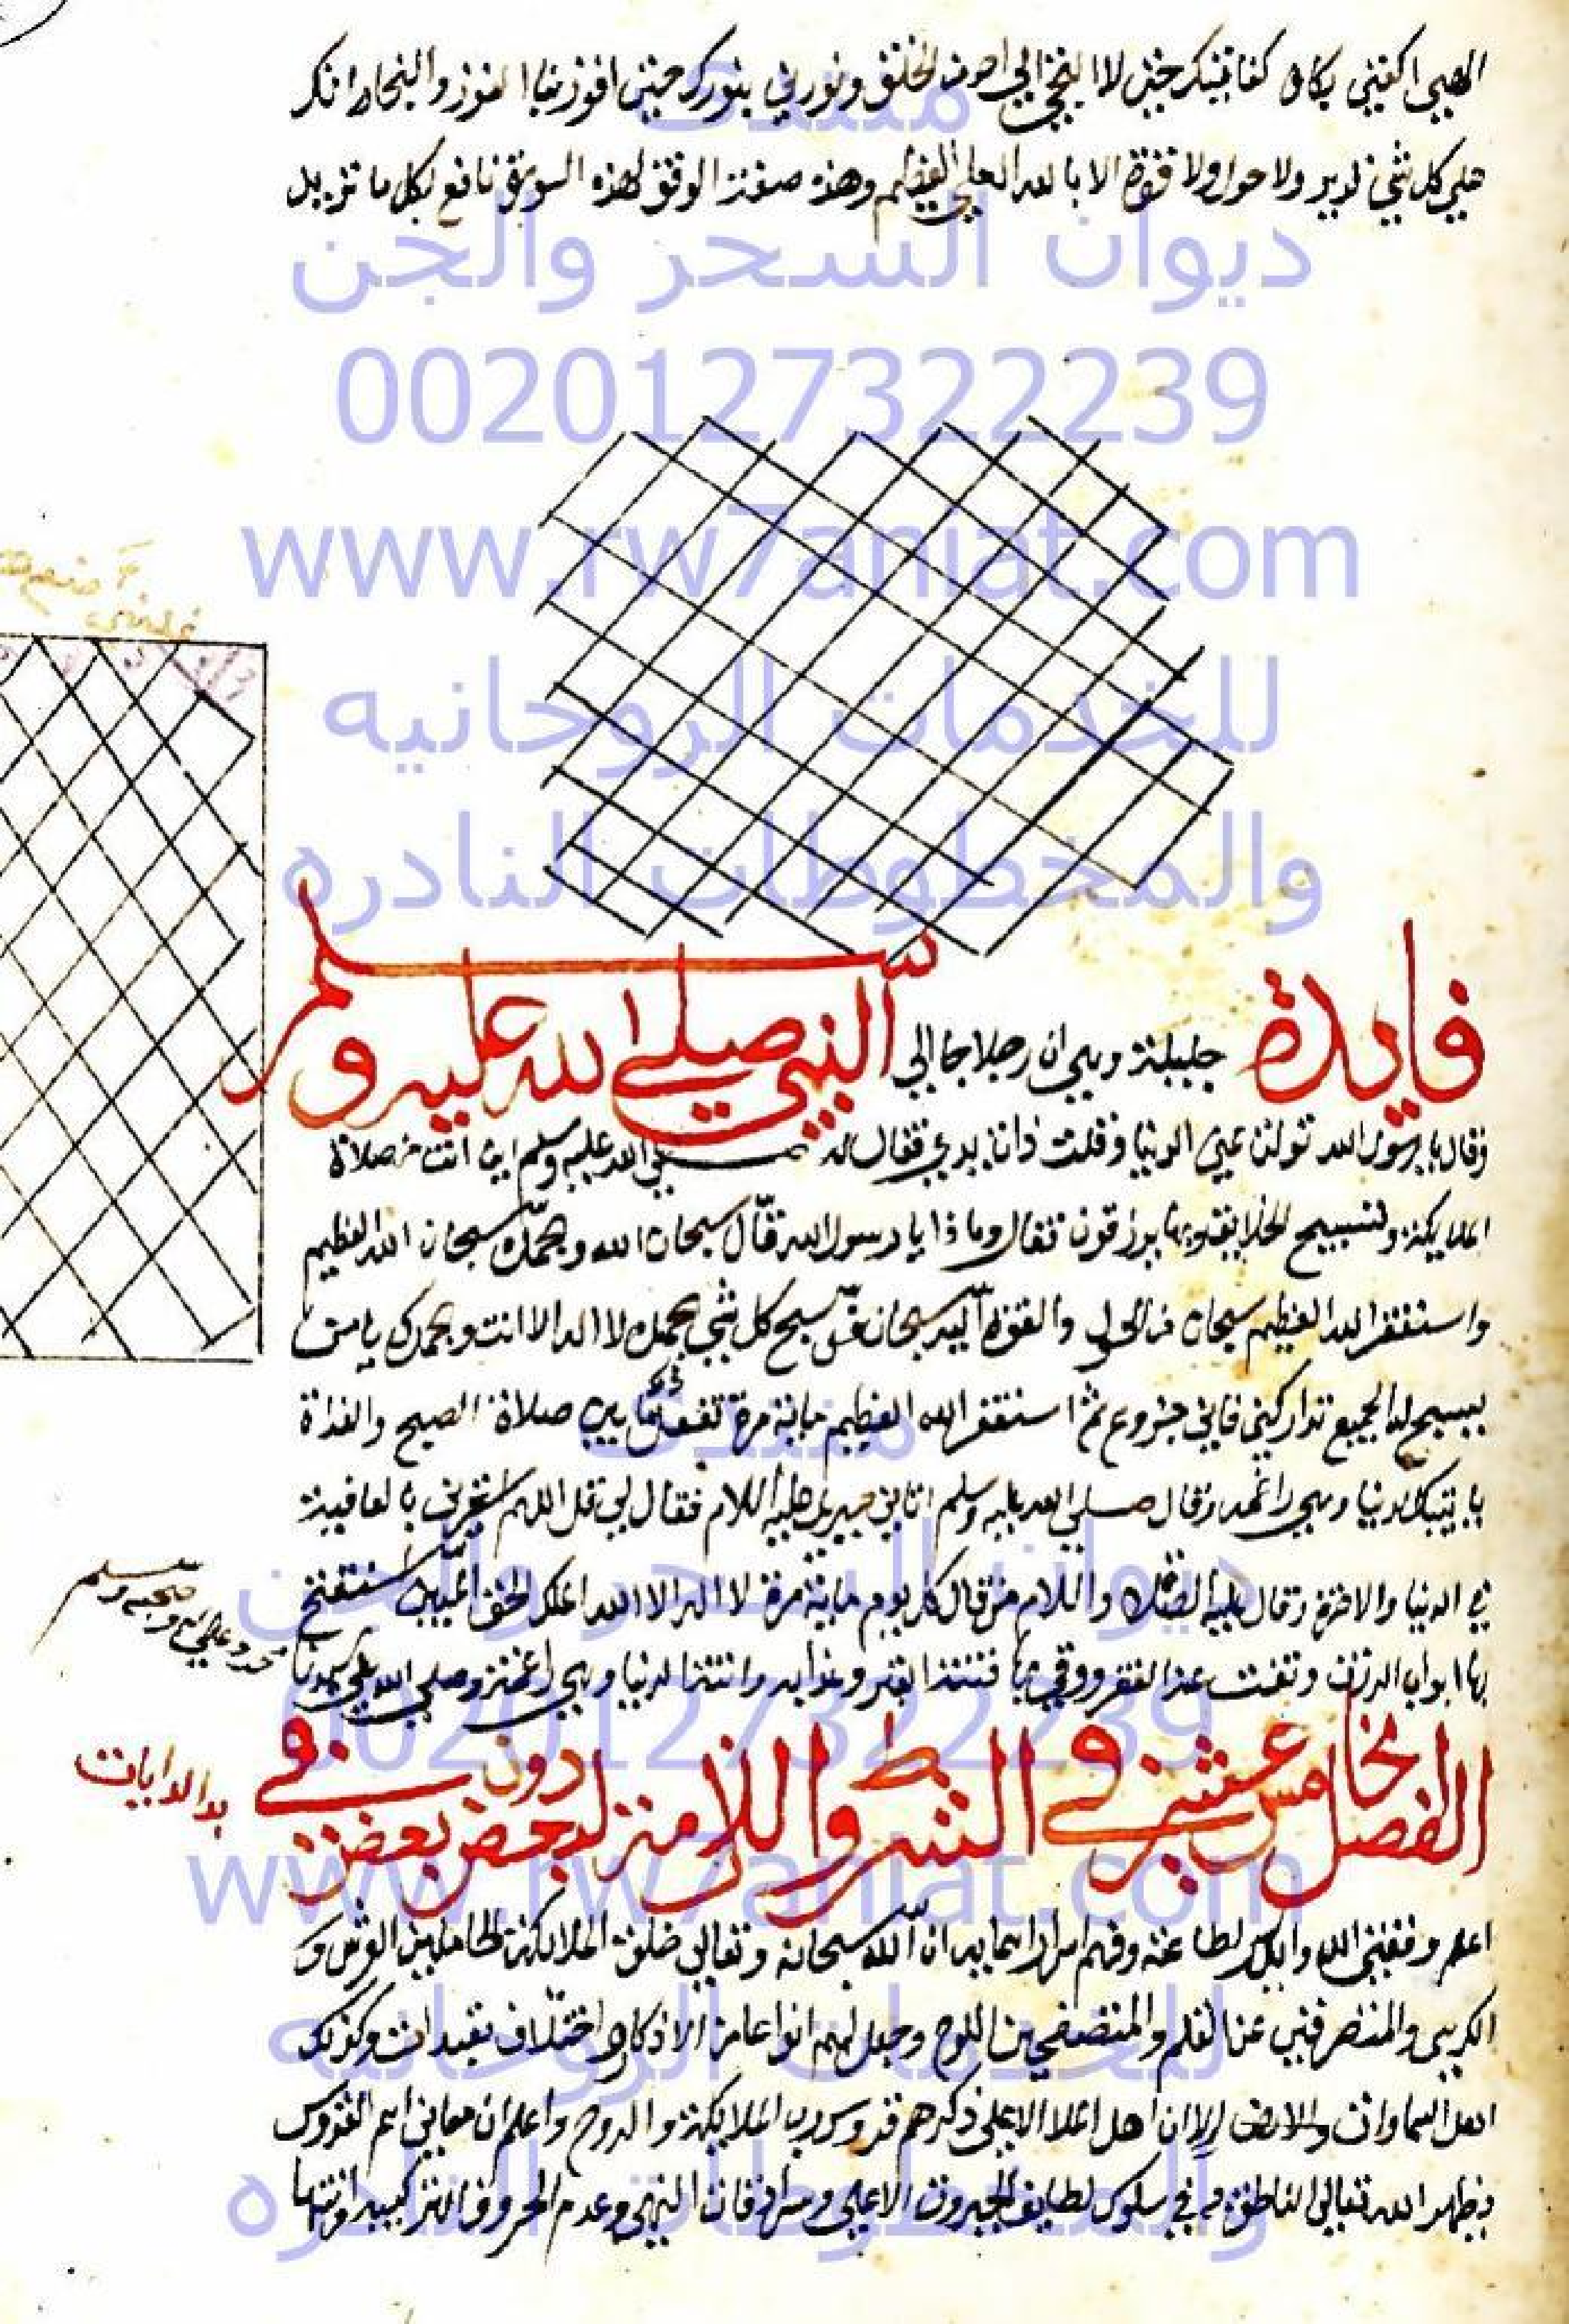 الهي اكفيني بكاف كفايتك حتي لا التجي الي احد من الخلق ونورني بنورك حتي افوز بنا الفوز والنجاة انك
علي كل شي قدير ولا حول ولا قوة الا بالله العلي العظيم وهذه صفة الوفق لهذه السورة نافع لكل ما تريد
منتدى
ديوان السحر والجن
0020127322239
www.rw7aniat.com
للخدمات الروحانيه
والمخطوطات النادره
فايدة جليلة وهي ان رجلا جا الي النبي صلي الله عليه وسلم
وقال يا رسول الله تولت عني الدنيا وقلت ذات يدي فقال له صلي الله عليه وسلم اين انت من صلاة
الملايكة وتسبيح الخلايق وبها يرزقون فقال وما ذا يا رسول الله قال سبحان الله وبحمده سبحان الله العظيم
واستغفر الله العظيم سبحان من الحول والقوة اليه سبحان من سبح كل شي بحمده لا اله الا انت وبحمدك يا من
يسبح له الجميع تداركني فاني جزوع ثم استغفر الله العظيم ماية مرة تفعل ما بين صلاة الصبح والغداة
ياتيك الدنيا وهي راغمة وقال صلي الله عليه وسلم اتاني جبريل عليه السلام فقال لي قل اللهم استرني بالعافية
في الدنيا والاخرة وقال عليه الصلاة والسلام من قال كل يوم ماية مرة لا اله الا الله الملك الحق المبين استفتح
بها ابواب الرزق ونفت عنه الفقر ووقي بها فتنة القبر وعذابه واتته الدنيا وهي راغمة وصلي الله علي سيدنا
محمد وعلي اله وصحبه وسلم
الفصل الخامس عشر في الشروط اللازمة لبعض دون بعض في
بدا البدايات
اعلم وفقني الله واياك لطاعته وفهم اسرار اسمايه ان الله سبحانه وتعالي خلق الملايكة الحاملين العرش و
الكرسي والمتصرفين عن القلم والمتصفحين اللوح وجعل لهم انواعا من الاذكار واختلاف تعبدات وكذلك
اهل السماوات والارض الا ان اهل الملا الاعلي ذكرهم قدوس رب الملايكة والروح واعلم ان معاني اسم القدوس
منتدى
ديوان السحر والجن
0020127322239
www.rw7aniat.com
للخدمات الروحانيه
والمخطوطات النادره